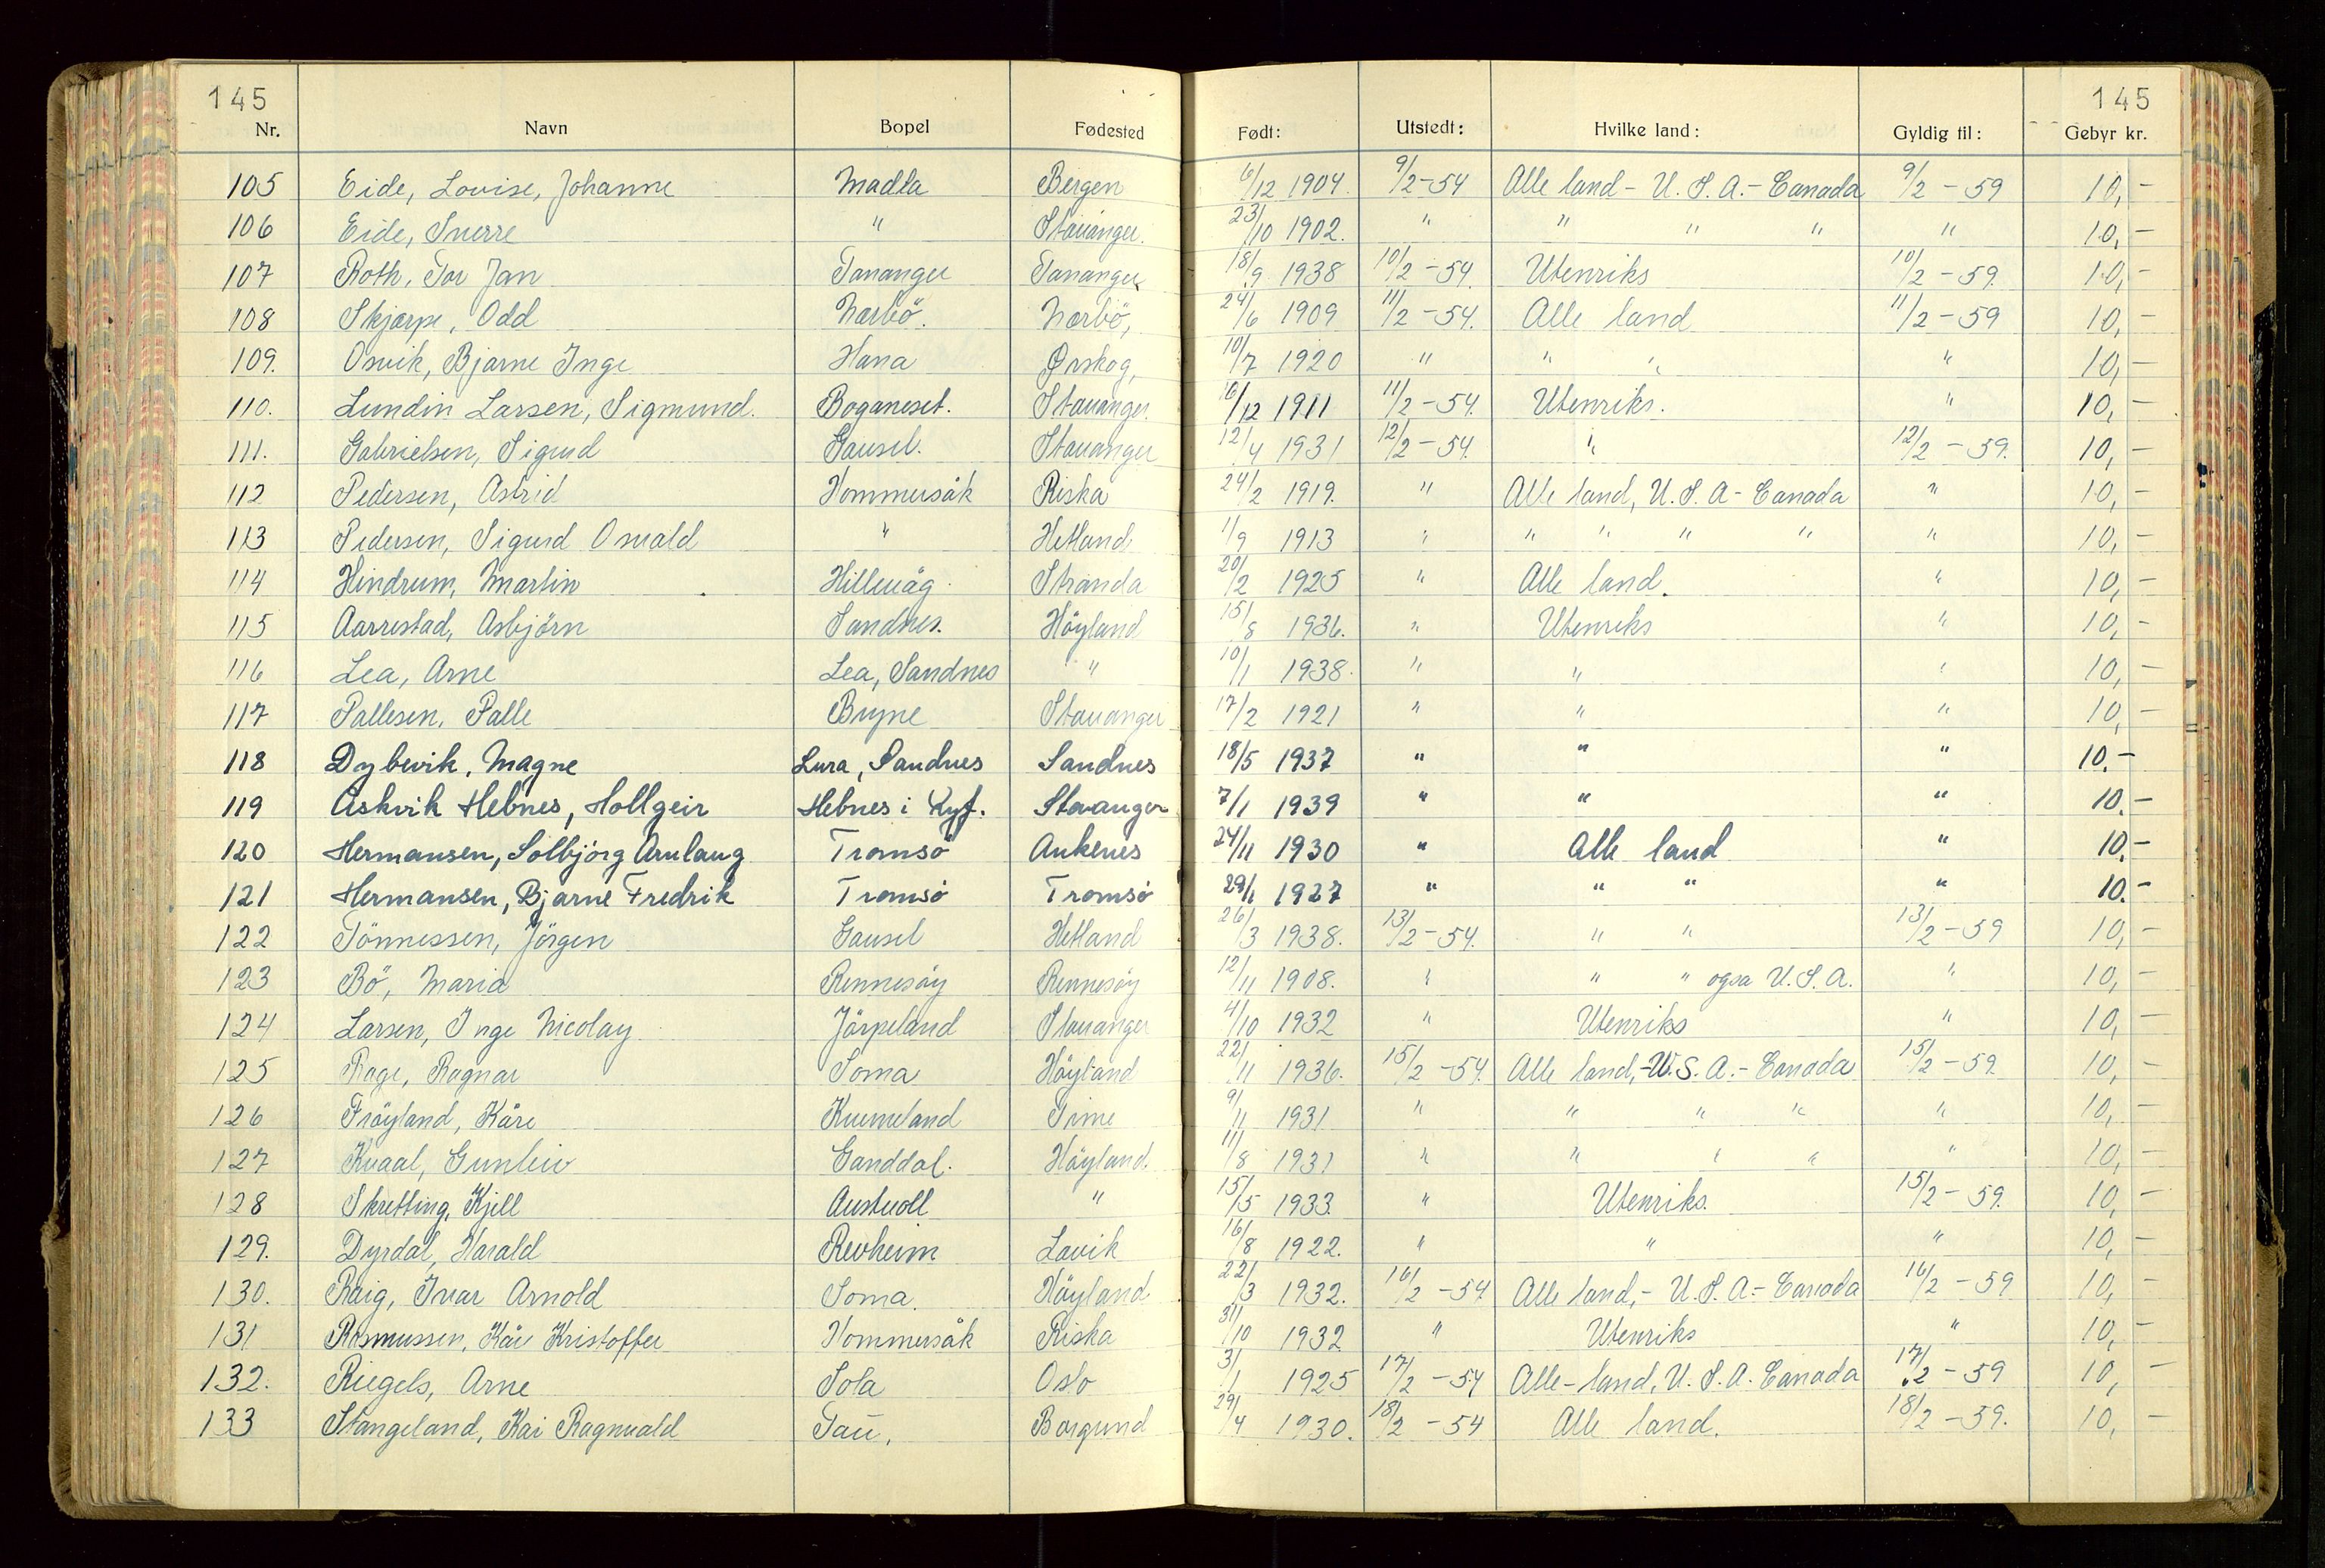 145 145
Nr. Navn Bopel Fødested Født: Utstedt: Hvilke land: Gyldig til: Gebyr kr.
105 Eide, Lovise, Johanne Madla Bergen 6/12 1904. 9/2-54 Alle land - U.S.A.- Canada 9/2 - 59 10,-
106 Eide, Sverre " Stavanger. 23/10 1902. " " " " " 10,-
107 Roth, Tor Jan Tananger Tananger 18/9 1938 10/2-54. Utenriks 10/2 - 59. 10,-
108 Skjærpe, Odd Nærbö. Nærbö, 24/6 1909 11/2-54. Alle land 11/2 - 59 10,-
109. Osvik, Bjarne Inge Hana Ørskog, 10/7 1920 " " " " 10,-
110. Lundin Larsen, Sigmund. Boganeset. Stavanger. 16/12 1911 11/2-54. Utenriks. " 10,-
111. Gabrielsen, Sigurd Gausel. Stavanger 12/4 1931 12/2-54. " 12/2 - 59. 10,-
112 Pedersen, Astrid Hommersåk Riska 24/2 1919. " Alle land, U.S.A - Canada " 10,-
113 Pedersen, Sigurd Osvald " Hetland 1/9 1913 " " " " " " 10,-
114 Hindrum, Martin Hillevåg Stranda 20/2 1925 " Alle land. " 10,-
115 Aarrestad, Asbjörn Sandnes. Höyland 15/8 1936. " Utenriks " 10,-
116 Lea, Arne Lea, Sandnes " 10/1 1938. " " " 10,-
117 Pallesen, Palle Bryne Stavanger 17/2 1921 " " " 10,-
118 Dybevik, Magne Lura, Sandnes Sandnes 18/5 1937 " " " 10.-
119 Askvik Hebnes, Hollgeir Hebnes i Ryf. Stavanger 7/1 1939 " " " 10.-
120 Hermansen, Solbjörg Arnlaug Tromsö Ankenes 24/11 1930 " Alle land " 10.-
121 Hermansen, Bjarne Fredrik Tromsö Tromsö 29/1 1927 " " " " 10.-
122 Tönnessen, Jörgen Gausel Hetland 26/3 1938. 13/2-54. " " 13/2-59 10,-
123 Bö, Maria Rennesöy Rennesöy 12/11 1908. " " " ogsa U.S.A. " 10,-
124 Larsen, Inge Nicolay Jörpeland Stavanger 4/10 1932 " Utenriks " 10,-
125 Rage, Ragnar Soma Höyland 22/11 1936. 15/2-54. Alle land,-U.S.A.- Canada 15/2-59. 10,-
126 Fröyland, Kåre Kverneland Time 9/11 1931 " " " " " 10,-
127 Kvaal, Gunleiv Ganddal. Höyland. 11/8 1931 " " " " " 10,-
128 Skretting, Kjell Austvoll " 15/5 1933. " Utenriks. 15/2 - 59. 10,-
129. Dyrdal, Harald Revheim Lavik 16/8 1922. " " " 10,-
130. Raig, Ivar Arnold Soma. Höyland 22/3 1932. 16/2-54 Alle land,- U.S.A.- Canada 16/2 - 59 10,-
131 Rasmussen, Kåre Kristoffer Hommersåk Riska 31/10 1932 " Utenriks " 10,-
132. Riegels, Arne Sola Oslo 3/1 1925 17/2 - 54 Alle-land, U.S.A. Canada 17/2 - 59 10,-
133 Stangeland, Kai Ragnvald Tau, Borgund 29/4 1930. 18/2 - 54 Alle land. 18/2 - 59. 10,-